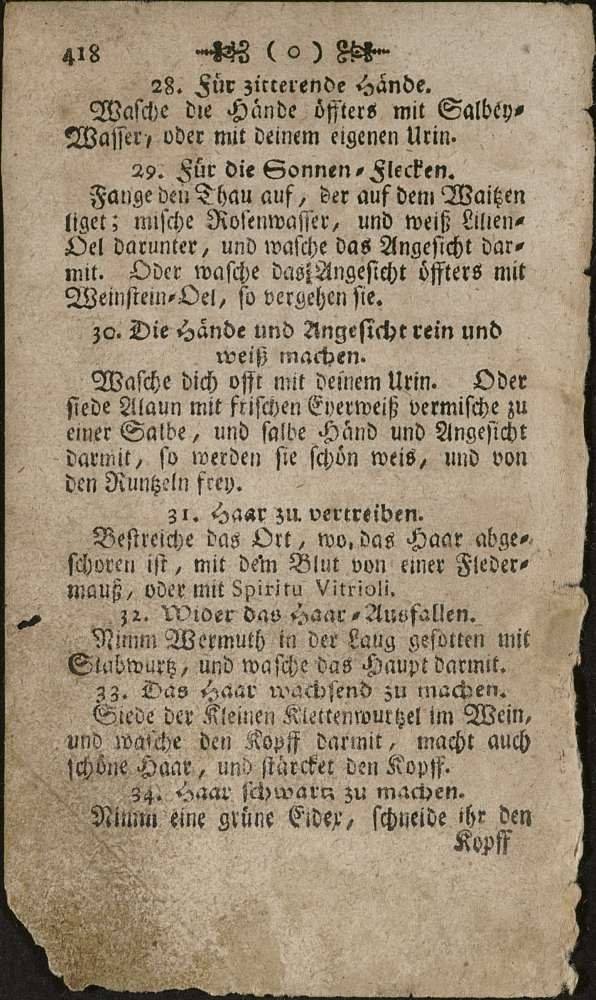 418 ( o )
28. Für zitterende Hände.
Wasche die Hände öffters mit Salbey-
Wasser, oder mit deinem eigenen Urin.
29. Für die Sonnen-Flecken.
Fange den Thau auf, der auf dem Waitzen
liget; mische Rosenwasser, und weiß Lilien-
Oel darunter, und wasche das Angesicht dar-
mit. Oder wasche das Angesicht öffters mit
Weinstein-Oel, so vergehen sie.
30. Die Hände und Angesicht rein und
weiß machen.
Wasche dich offt mit deinem Urin. Oder
siede Alaun mit frischen Eyerweiß vermische zu
einer Salbe, und salbe Händ und Angesicht
darmit, so werden sie schön weis, und von
den Runtzeln frey.
31. Haar zu vertreiben.
Bestreiche das Ort, wo, das Haar abge-
schoren ist, mit dem Blut von einer Fleder-
mauß, oder mit Spiritu Vitrioli.
32. Wider das Haar-Ausfallen.
Nimm Wermuth in der Laug gesotten mit
Stabwurtz, und wasche das Haupt darmit.
33. Das Haar wachsend zu machen.
Siede der Kleinen Klettenwurtzel im Wein,
und wasche den Kopff darmit, macht auch
schöne Haar, und stärcket den Kopff.
34. Haar schwartz zu machen.
Nimm eine grüne Eidex, schneide ihr den
Kopff